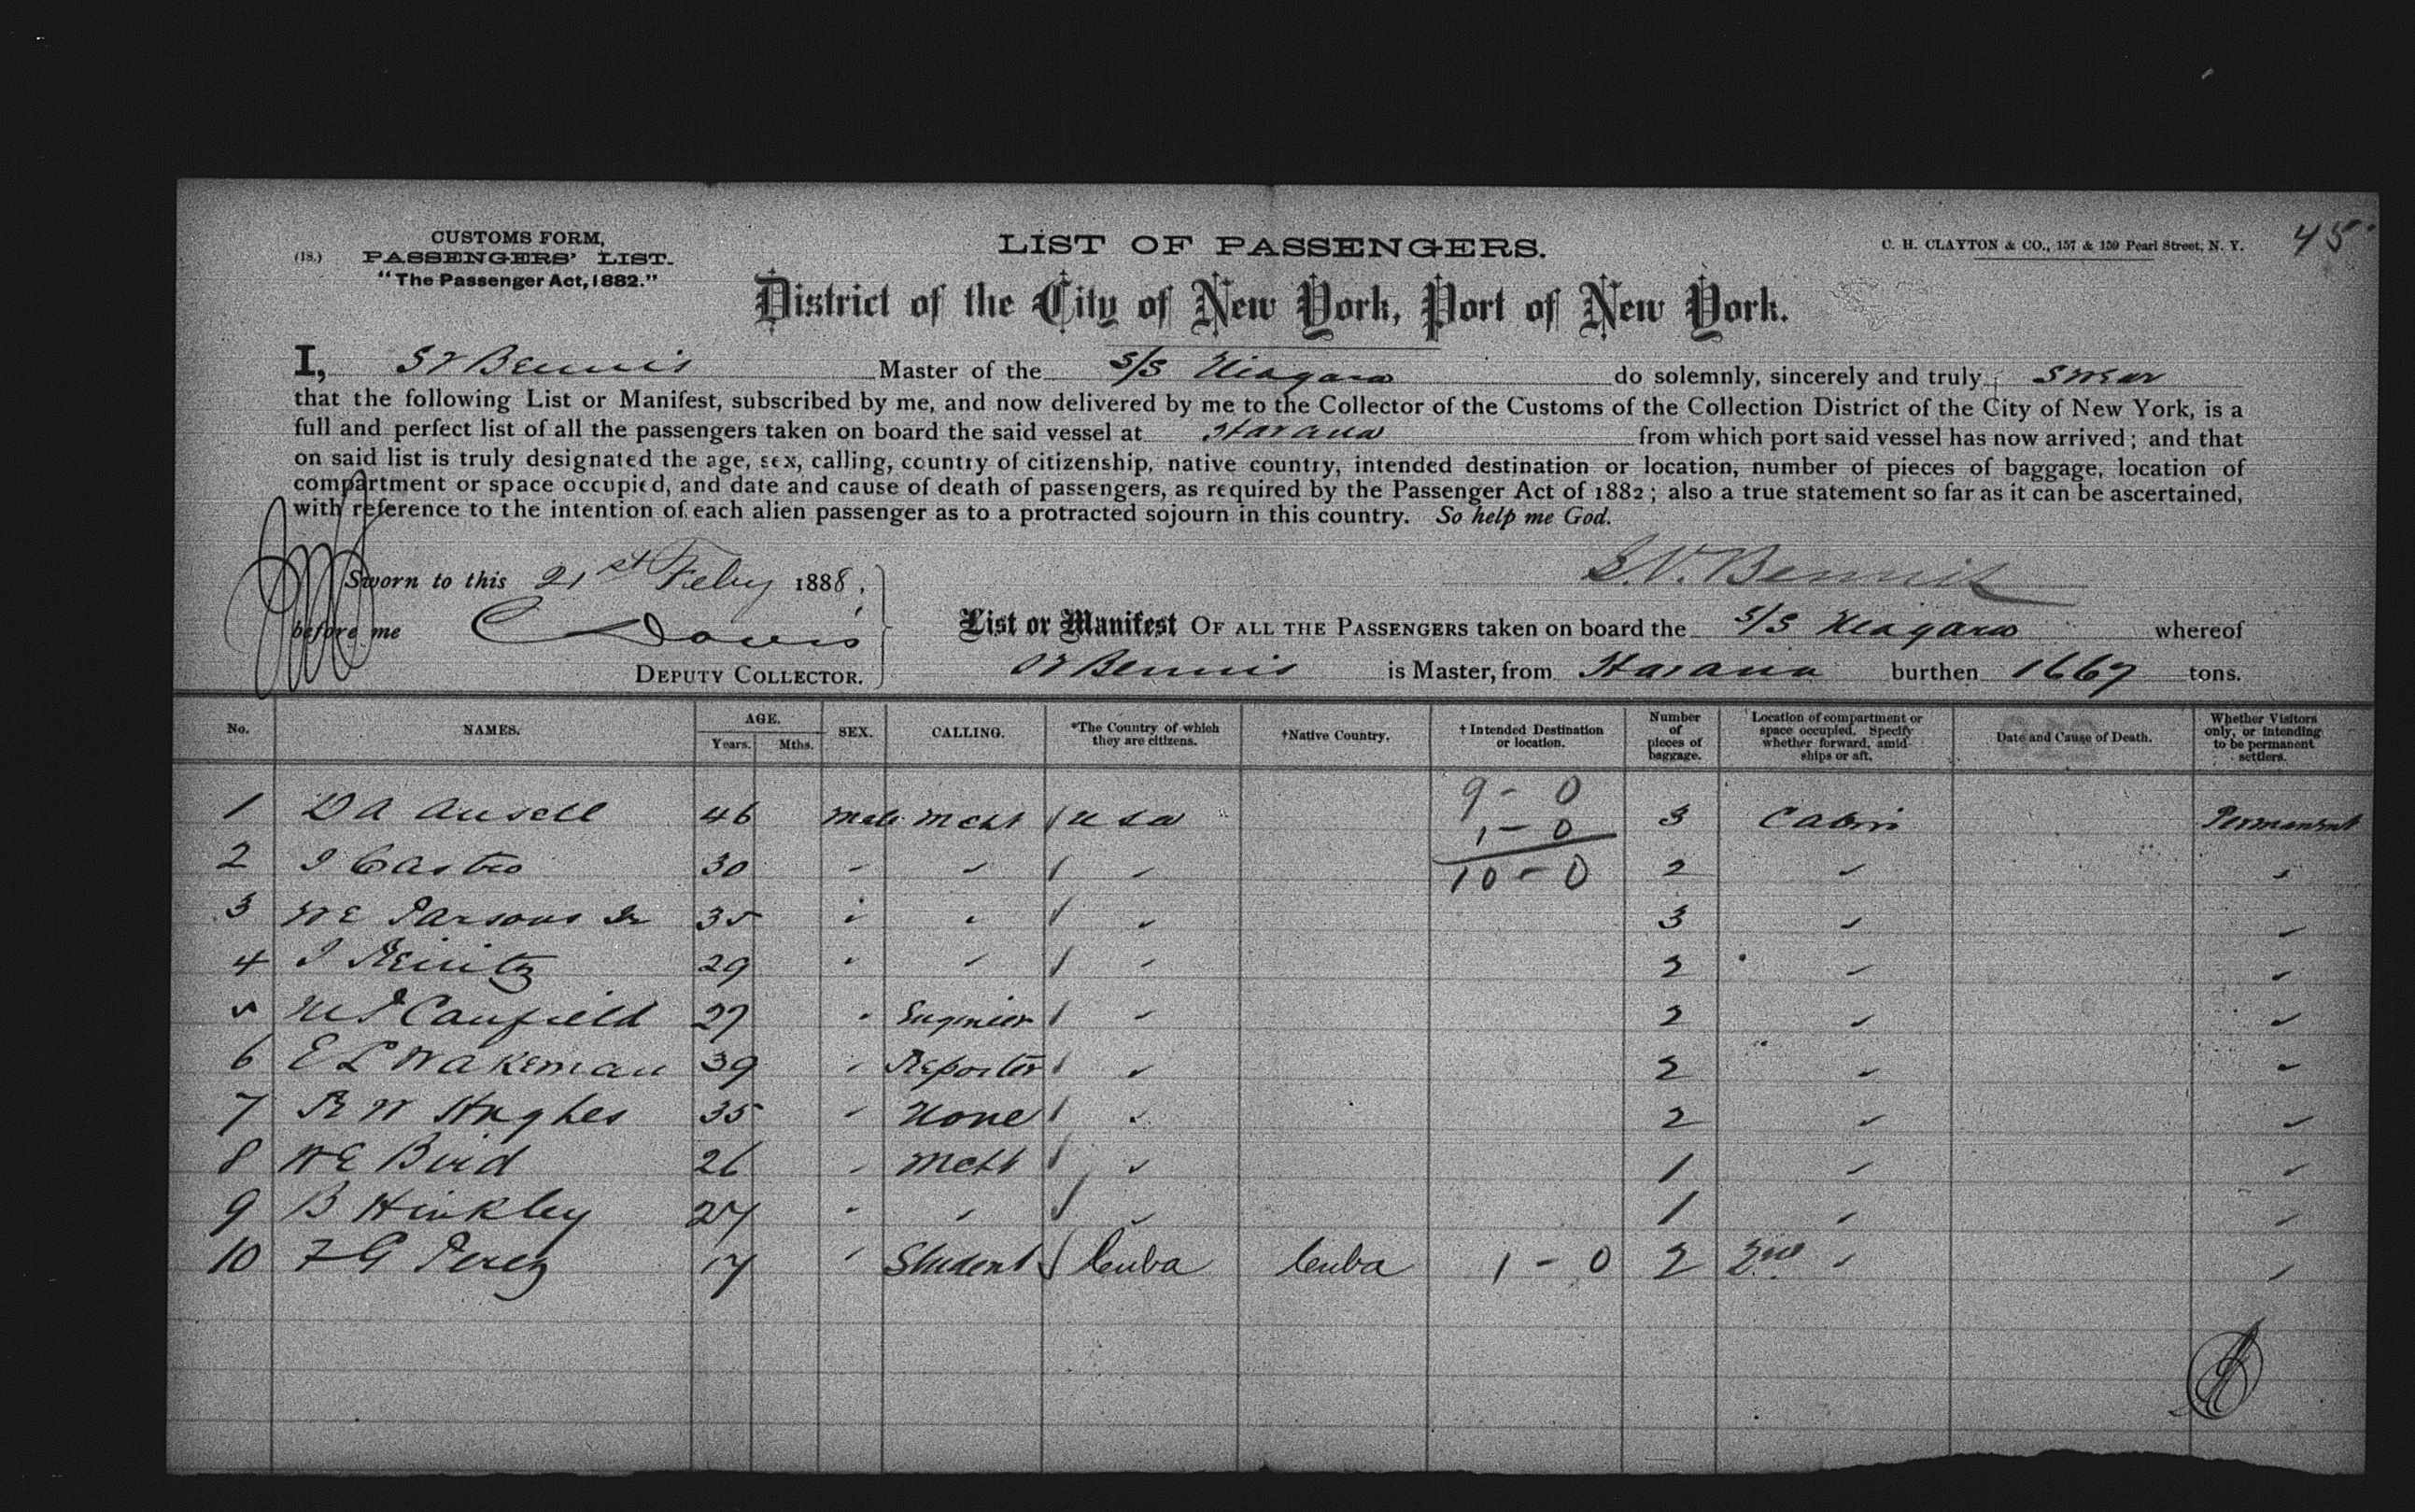 CUSTOMS FORM,
(18.) PASSENGERS' LIST.
"The Passenger Act, 1882."
LIST OF PASSENGERS.
C. H. CLAYTON & CO., 157 & 159 Pearl Street, N. Y.
45
District of the City of New York, Port of New York.
I, S V Bennis Master of the S/S Niagara do solemnly, sincerely and truly swear
that the following List or Manifest, subscribed by me, and now delivered by me to the Collector of the Customs of the Collection District of the City of New York, is a
full and perfect list of all the passengers taken on board the said vessel at Havana from which port said vessel has now arrived; and that
on said list is truly designated the age, sex, calling, country of citizenship, native country, intended destination or location, number of pieces of baggage, location of
compartment or space occupied, and date and cause of death of passengers, as required by the Passenger Act of 1882; also a true statement so far as it can be ascertained,
with reference to the intention of each alien passenger as to a protracted sojourn in this country. So help me God.
Sworn to this 21st Feby 1888,
S. V. Bennis
before me C Davis
DEPUTY COLLECTOR.
List or Manifest OF ALL THE PASSENGERS taken on board the S/S Niagara whereof
S V Bennis is Master, from Havana burthen 1667 tons.
No. NAMES. AGE. Years. Mths. SEX. CALLING. *The Country of which they are citizens. †Native Country. †Intended Destination or location. Number of pieces of baggage. Location of compartment or space occupied. Specify whether forward, amidships or aft. Date and Cause of Death. Whether Visitors only, or intending to be permanent settlers.
9 - 0
1 D A Ansell 46 Male Mcht / U S a 3 Cabin Permanent
1 - 0
2 J Castro 30 " " / " 10 - 0 2 " "
3 W E Parsons Jr 35 " " / " 3 " "
4 J Reinitz 29 " " / " 2 " "
5 Canfield 27 " Engineer / " 2 " "
6 E L Wakeman 39 " Reporter / " 2 " "
7 R W Hughes 35 " None / " 2 " "
8 W E Bird 26 " Mcht / " 1 " "
9 B Hinkley 27 " " / " 1 " "
10 F G Perez 17 " Student / Cuba Cuba 1 - 0 2 2nd " "